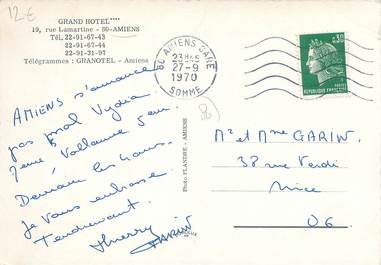 12€
GRAND HOTEL****
19, rue Lamartine - 80-AMIENS
Tél. 22-91-67-43
22-91-67-44
22-91-31-97
Télégrammes : GRANOTEL - Amiens
80 AMIENS GARE
27-9
1970
SOMME
0.30
REPUBLIQUE FRANCAISE
AMIENS s'annonce
pas mal Lydia
2ème
Demain les Mans.
Je vous embrasse
Tendrement.
Thierry
GARIN
Photo FLANDRE - AMIENS
Mr et Mme GARIN
38 rue Verdi
Nice
06